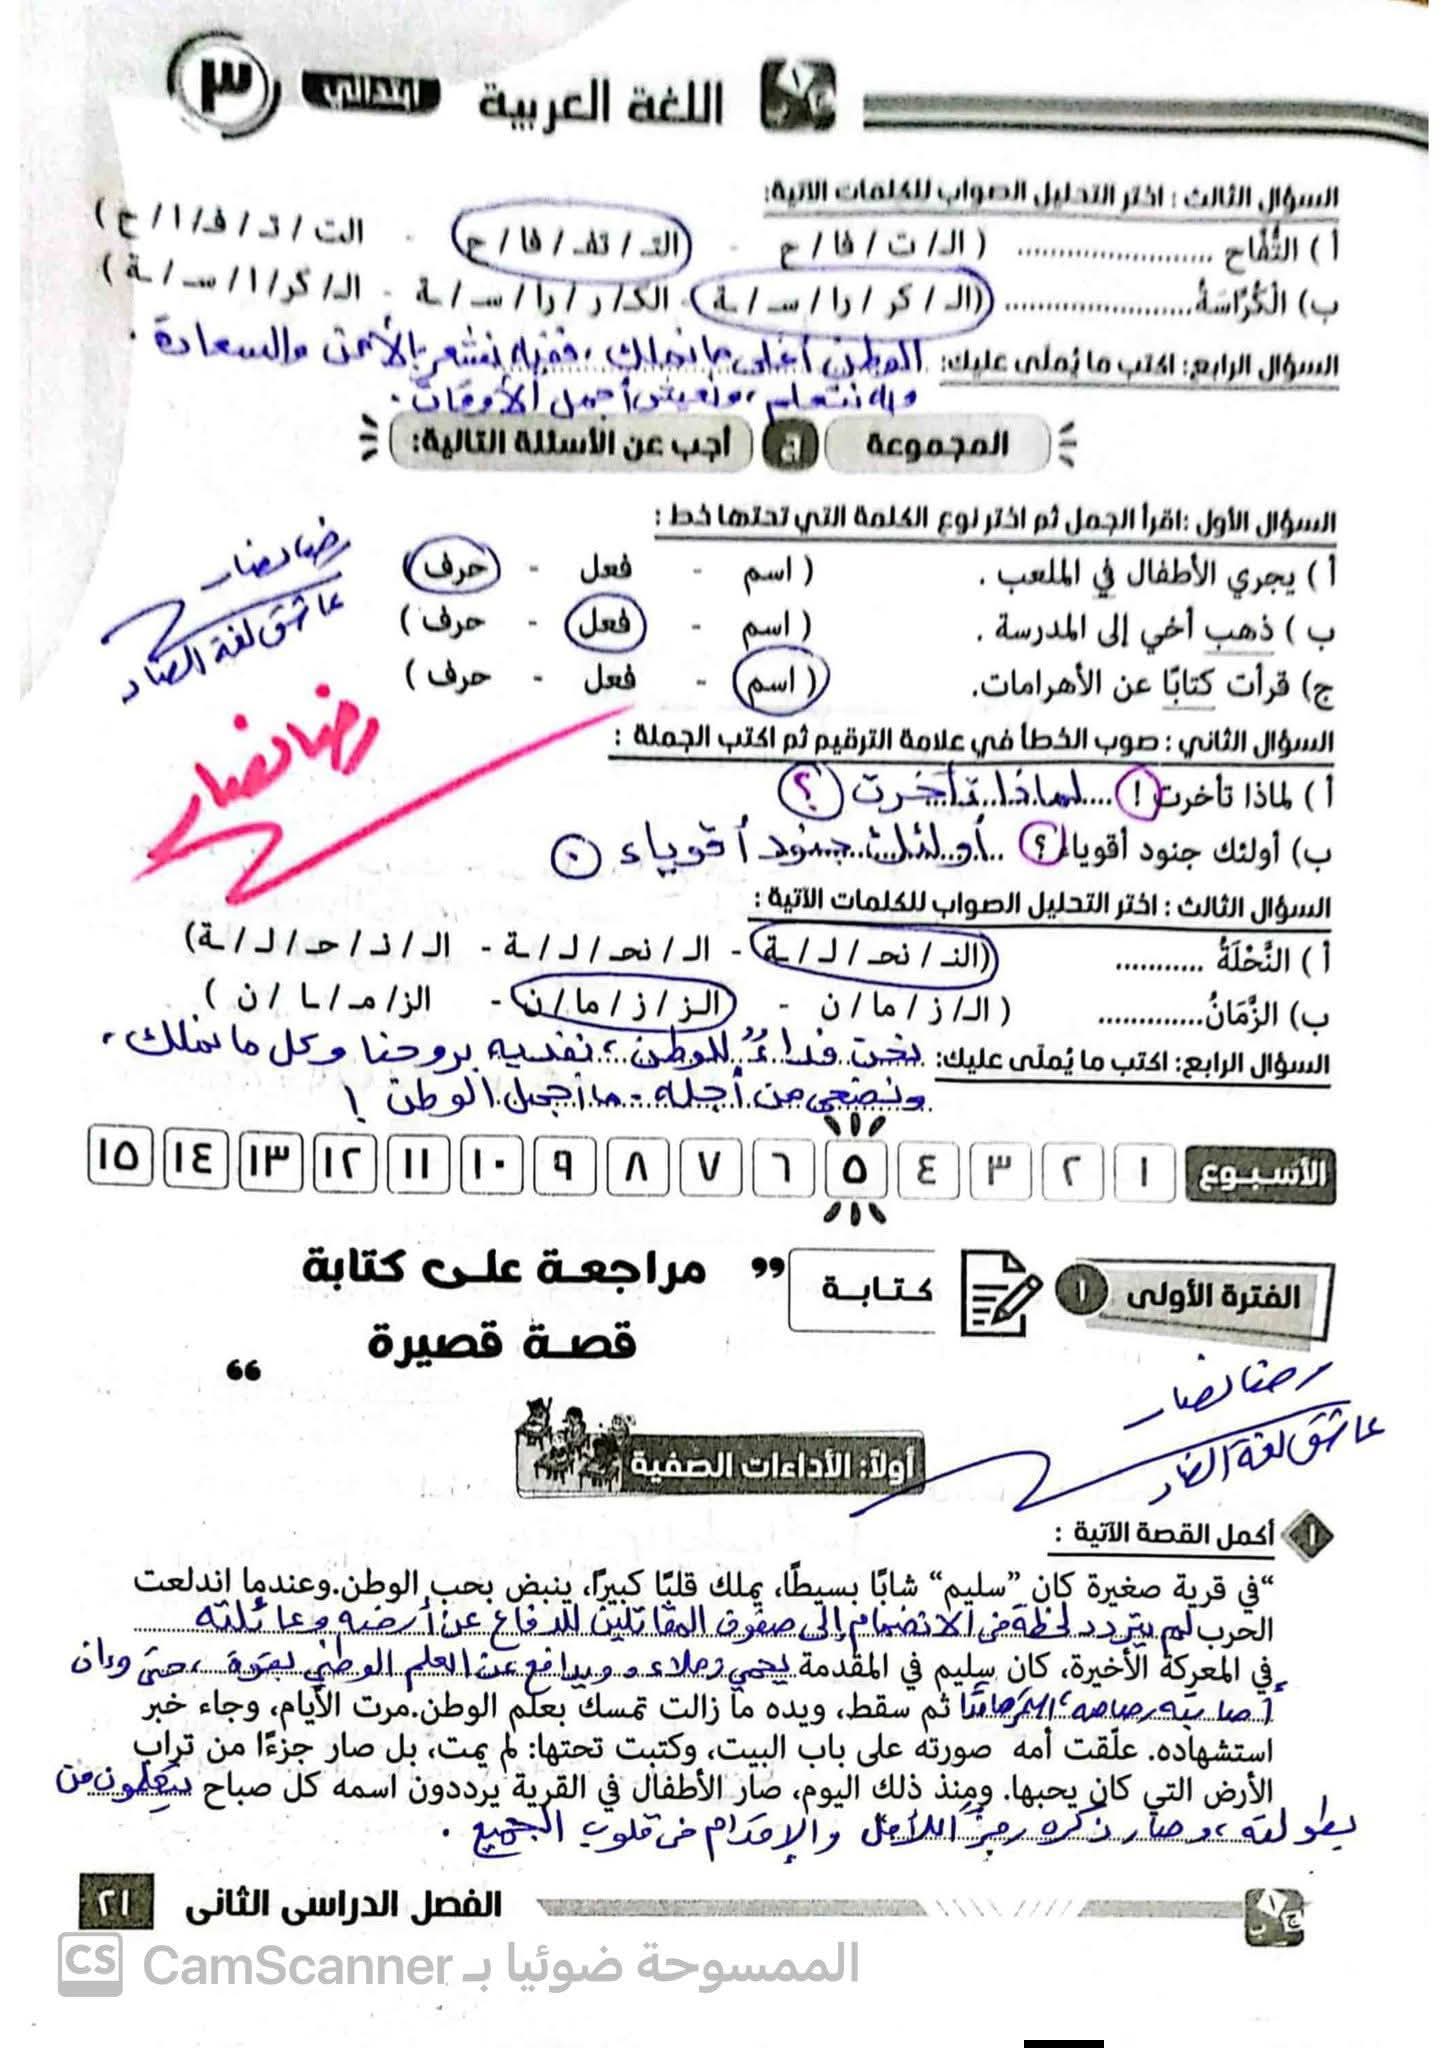 اللغة العربية ابتدائي ٣
السؤال الثالث : اختر التحليل الصواب للكلمات الآتية:
أ ) التُّفَّاح ........................ ( الـ/ ت / فا / ح - التـ / تفـ / فا / ح - الت / تـ / فـ / ا / ح )
ب) الْكُرَّاسَةُ ........................ (الـ / كر / را / سـ / ـة - الكـ/ ر / را / سـ / ـة - الـ/ كر/ ا / سـ / ـة )
السؤال الرابع: اكتب ما يُملَى عليك: الوطن أغلى ما نملك ، ففيه نشعر بالأمن والسعادة .
وبه نتعلم ، ونعيش أجمل الأوقات .
المجموعة ع أجب عن الأسئلة التالية:
السؤال الأول :اقرأ الجمل ثم اختر نوع الكلمة التي تحتها خط :
أ ) يجري الأطفال في الملعب . ( اسم - فعل - حرف )
ب ) ذهب أخي إلى المدرسة . ( اسم - فعل - حرف )
ج) قرأت كتابًا عن الأهرامات. ( اسم - فعل - حرف )
رضا نصار
عاشق لغة الضاد
رضا نصار
السؤال الثاني : صوب الخطأ في علامة الترقيم ثم اكتب الجملة :
أ ) لماذا تأخرت ! .... لماذا تأخرت ؟
ب) أولئك جنود أقوياء ؟ ... أولئك جنود أقوياء .
السؤال الثالث : اختر التحليل الصواب للكلمات الآتية :
أ ) النَّحْلَةُ ........... (النـ / نحـ / لـ / ـة - الـ / نحـ / لـ / ـة - الـ / نـ / حـ / لـ / ـة)
ب) الزَّمَانُ............. ( الـ/ ز / ما / ن - الـز / ز / ما / ن - الز/ مـ / ـا / ن )
السؤال الرابع: اكتب ما يُملَى عليك: نحن فداءٌ للوطن ، نفديه بروحنا وكل ما نملك ،
ونضحي من أجله . ما أجمل الوطن !
الأسبوع ١ ٢ ٣ ٤ ٥ ٦ ٧ ٨ ٩ ١٠ ١١ ١٢ ١٣ ١٤ ١٥
الفترة الأولى ١ كتابة ” مراجعة على كتابة
قصة قصيرة “
رضا نصار
عاشق لغة الضاد
أولاً: الأداءات الصفية
١ أكمل القصة الآتية :
“في قرية صغيرة كان ”سليم“ شابًا بسيطًا، يملك قلبًا كبيرًا، ينبض بحب الوطن.وعندما اندلعت
الحرب لم يتردد لحظة فى الانضمام إلى صفوف المقاتلين للدفاع عن أرضه وعائلته
في المعركة الأخيرة، كان سليم في المقدمة يحمي زملاءه ويدافع عن العلم الوطني بقوة ، حتى
أصابته رصاصة ثم سقط، ويده ما زالت تمسك بعلم الوطن.مرت الأيام، وجاء خبر
استشهاده. علّقت أمه صورته على باب البيت، وكتبت تحتها: لم يمت، بل صار جزءًا من تراب
الأرض التي كان يحبها. ومنذ ذلك اليوم، صار الأطفال في القرية يرددون اسمه كل صباح يتعلمون من
بطولته ، وصار ذكره رمزًا للأمل والإقدام فى قلوب الجميع .
الفصل الدراسى الثانى ٢١
CS CamScanner الممسوحة ضوئيا بـ